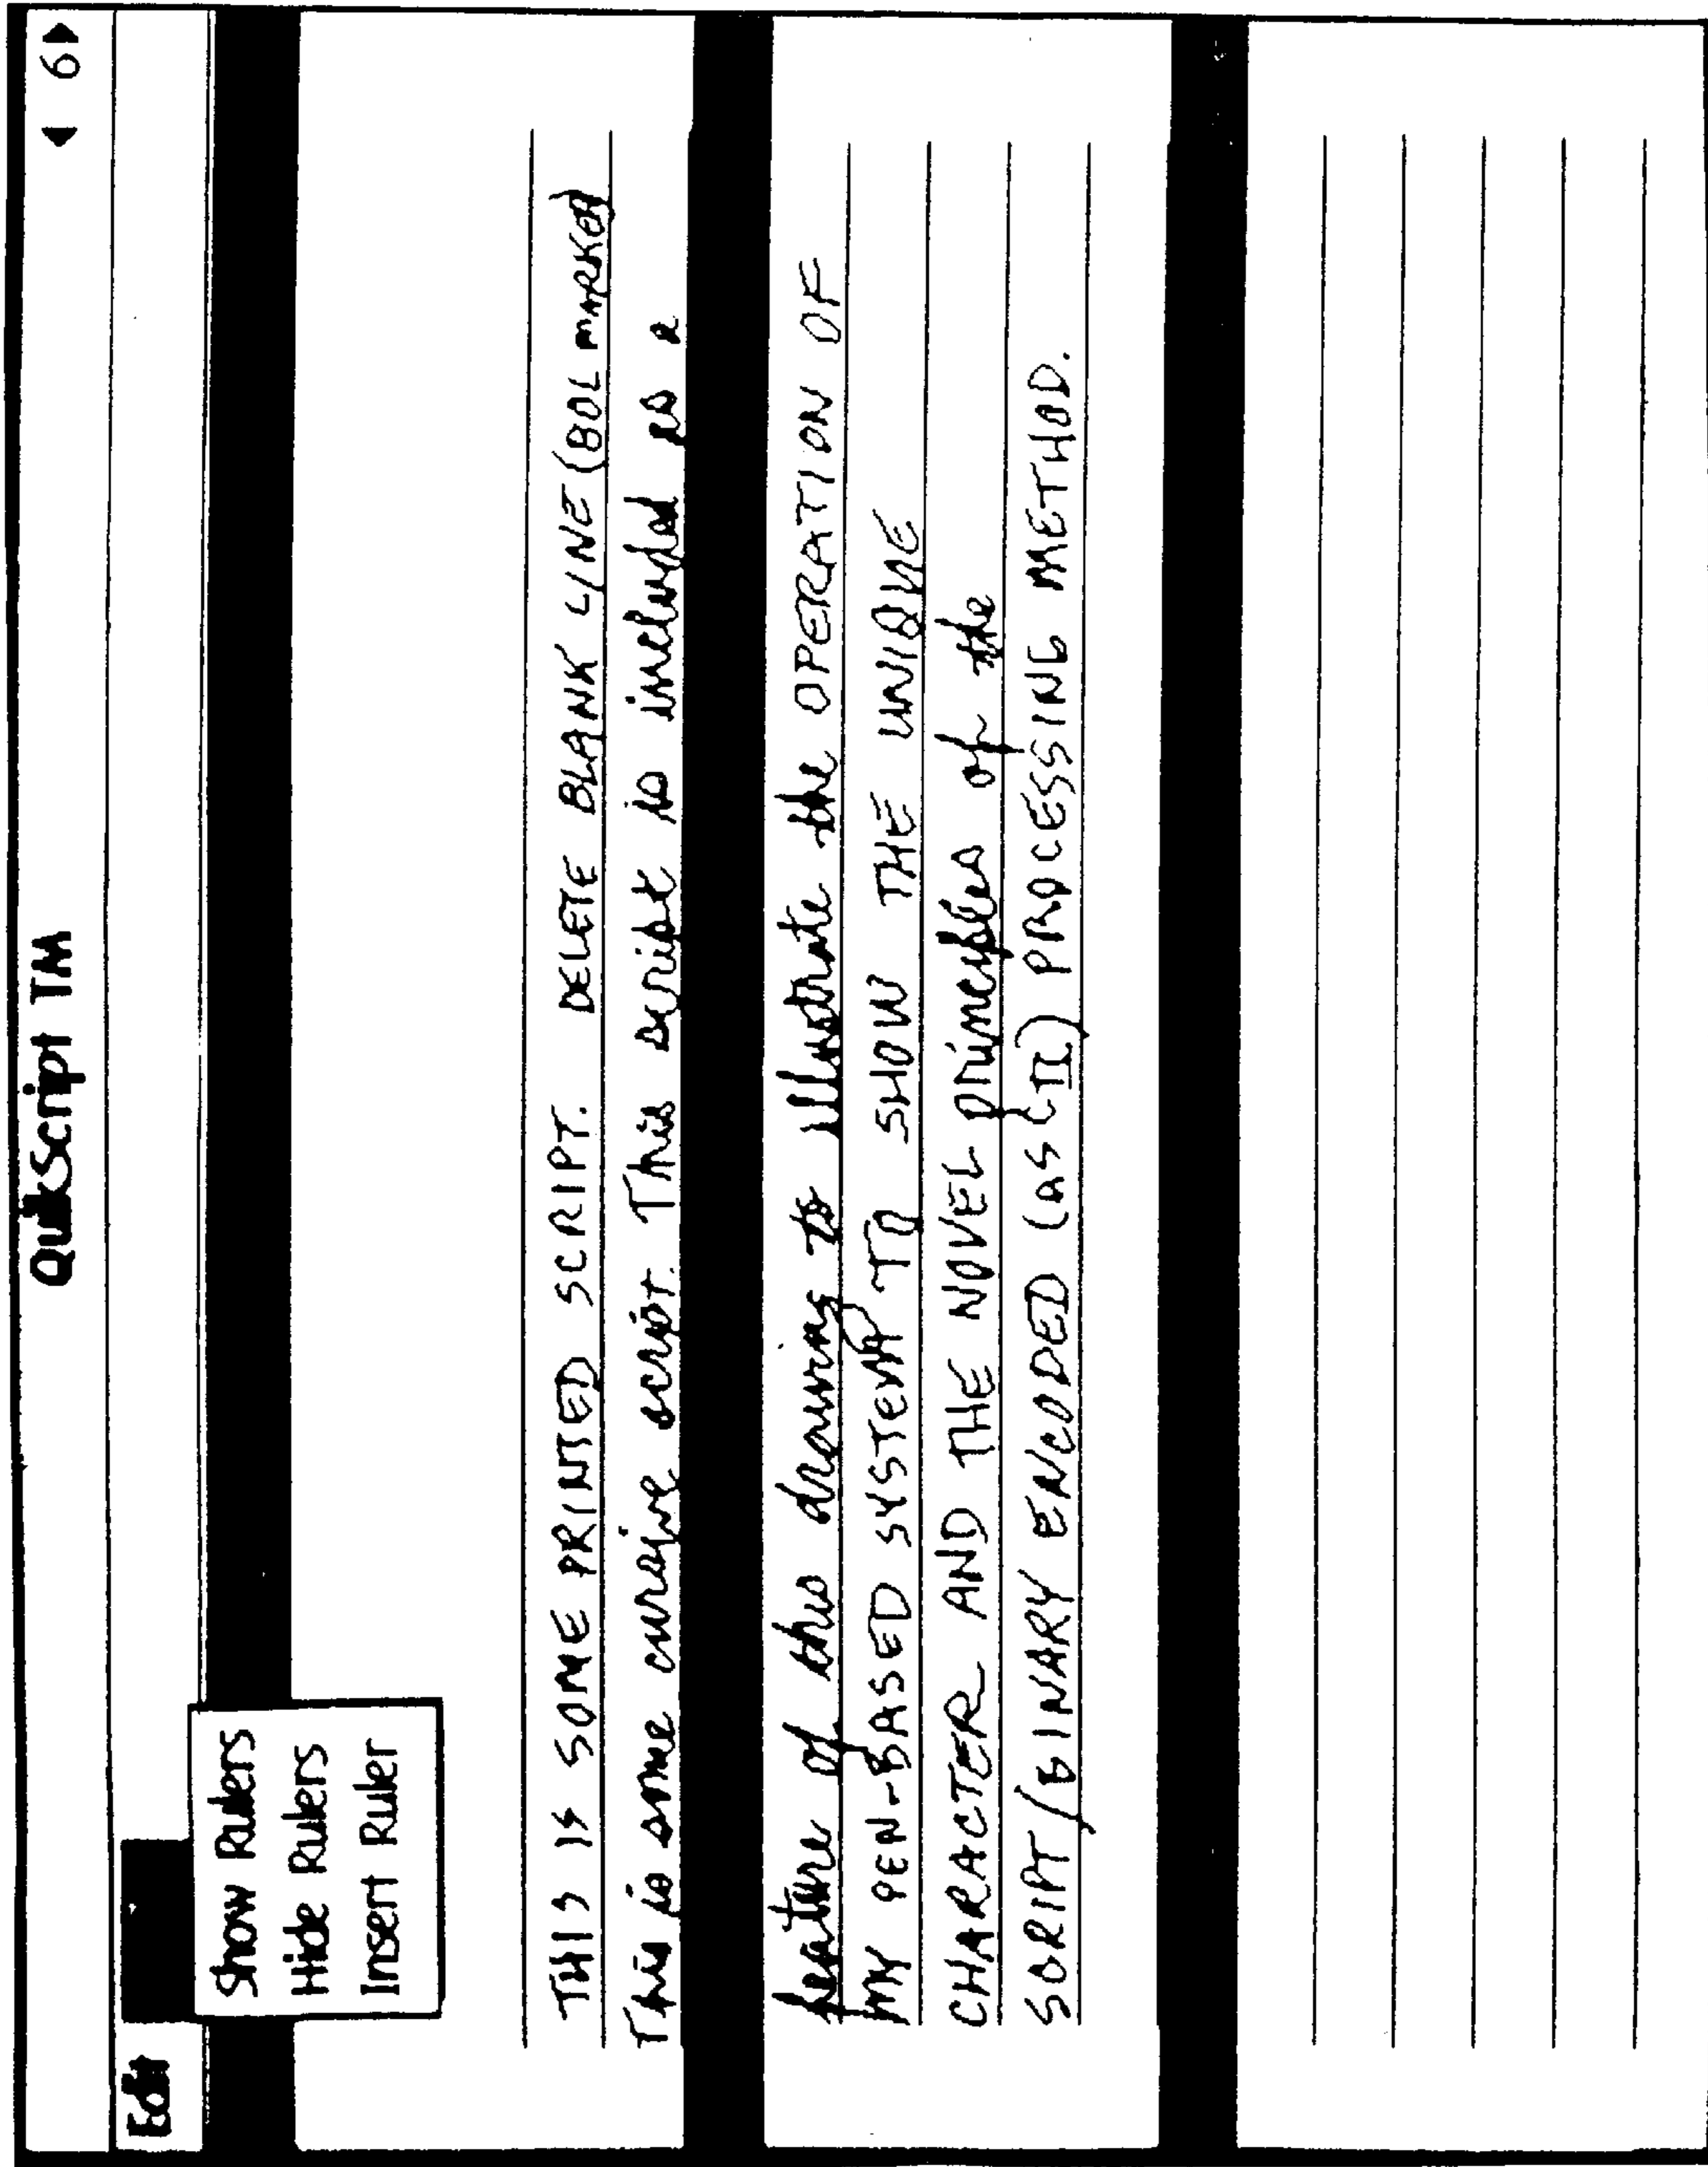 QuikScript TM
◀ 6 ▶
Edit
Show Rulers
Hide Rulers
Insert Ruler
THIS IS SOME PRINTED SCRIPT. DELETE BLANK LINE (BOL MARKER)
This is some cursive script. This script is included as a
feature of this drawing to illustrate the OPERATION OF
MY PEN-BASED SYSTEM TO SHOW THE UNIQUE
CHARACTER AND THE NOVEL principles of the
SCRIPT/BINARY ENCODED (ASCII) PROCESSING METHOD.